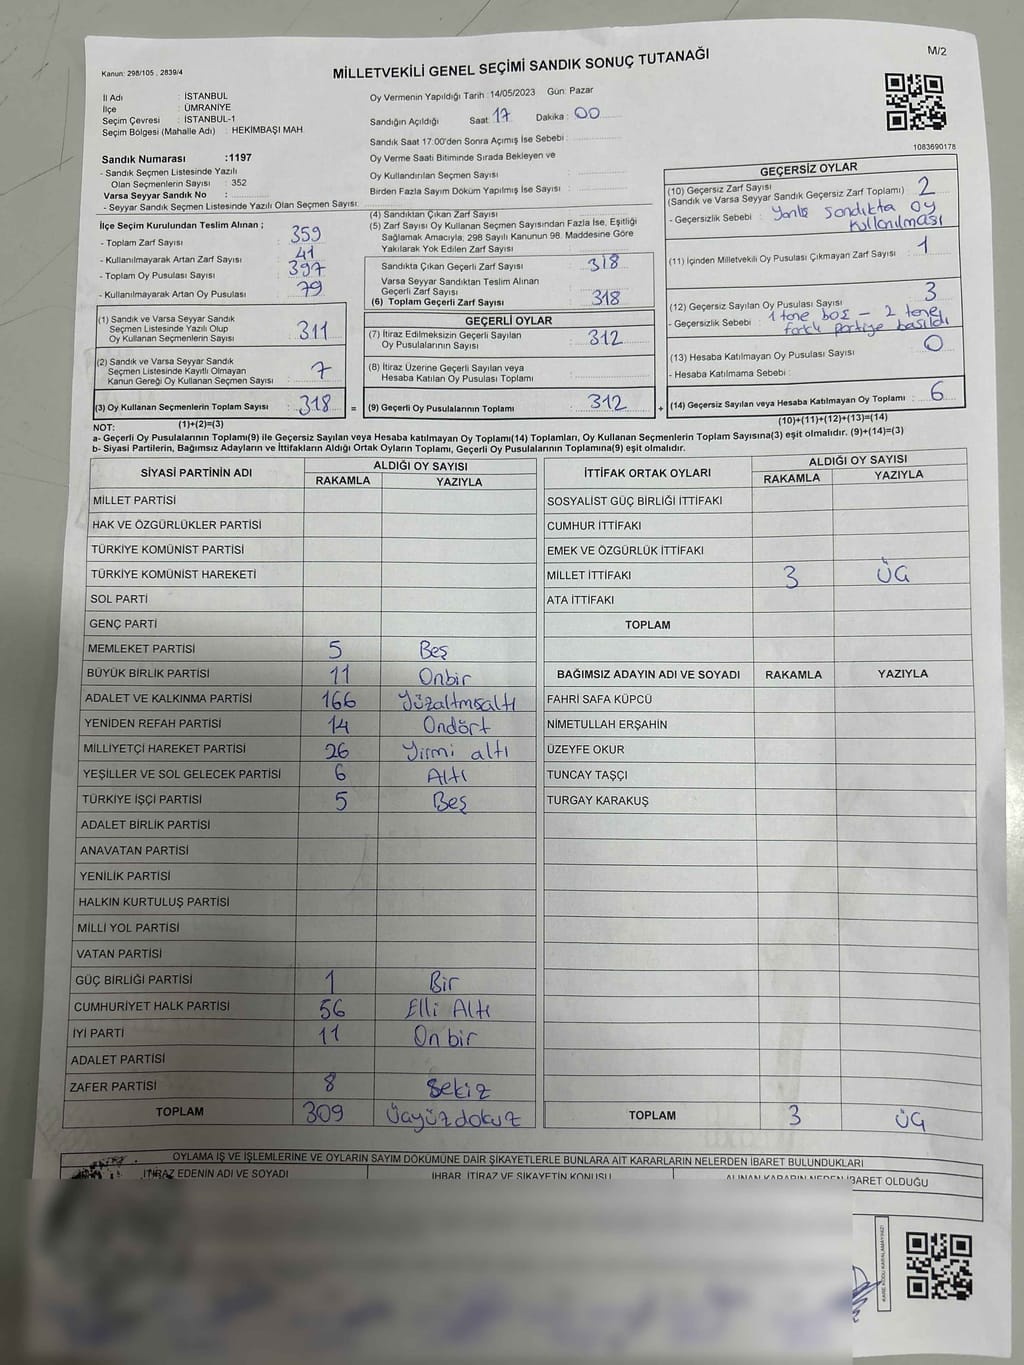 M/2
Kanun: 298/105 , 2839/4
MİLLETVEKİLİ GENEL SEÇİMİ SANDIK SONUÇ TUTANAĞI
İl Adı : İSTANBUL
İlçe : ÜMRANİYE
Seçim Çevresi : İSTANBUL-1
Seçim Bölgesi (Mahalle Adı) : HEKİMBAŞI MAH.
Sandık Numarası :1197
- Sandık Seçmen Listesinde Yazılı
Olan Seçmenlerin Sayısı : 352
Varsa Seyyar Sandık No :
- Seyyar Sandık Seçmen Listesinde Yazılı Olan Seçmen Sayısı:
Oy Vermenin Yapıldığı Tarih : 14/05/2023 Gün: Pazar
Sandığın Açıldığı Saat: 17 Dakika: 00
Sandık Saat 17.00'den Sonra Açımış İse Sebebi :
Oy Verme Saati Bitiminde Sırada Bekleyen ve
Oy Kullandırılan Seçmen Sayısı :
Birden Fazla Sayım Döküm Yapılmış İse Sayısı :
1083690178
İlçe Seçim Kurulundan Teslim Alınan ;
- Toplam Zarf Sayısı : 359
- Kullanılmayarak Artan Zarf Sayısı : 41
- Toplam Oy Pusulası Sayısı : 397
- Kullanılmayarak Artan Oy Pusulası : 79
(1) Sandık ve Varsa Seyyar Sandık
Seçmen Listesinde Yazılı Olup
Oy Kullanan Seçmenlerin Sayısı : 311
(2) Sandık ve Varsa Seyyar Sandık
Seçmen Listesinde Kayıtlı Olmayan
Kanun Gereği Oy Kullanan Seçmen Sayısı : 7
(3) Oy Kullanan Seçmenlerin Toplam Sayısı : 318 =
(1)+(2)=(3)
(4) Sandıktan Çıkan Zarf Sayısı :
(5) Zarf Sayısı Oy Kullanan Seçmen Sayısından Fazla İse, Eşitliği
Sağlamak Amacıyla, 298 Sayılı Kanunun 98. Maddesine Göre
Yakılarak Yok Edilen Zarf Sayısı :
Sandıkta Çıkan Geçerli Zarf Sayısı : 318
Varsa Seyyar Sandıktan Teslim Alınan
Geçerli Zarf Sayısı :
(6) Toplam Geçerli Zarf Sayısı : 318
GEÇERLİ OYLAR
(7) İtiraz Edilmeksizin Geçerli Sayılan
Oy Pusulalarının Sayısı : 312
(8) İtiraz Üzerine Geçerli Sayılan veya
Hesaba Katılan Oy Pusulası Toplamı :
(9) Geçerli Oy Pusulalarının Toplamı : 312 +
GEÇERSİZ OYLAR
(10) Geçersiz Zarf Sayısı
(Sandık ve Varsa Seyyar Sandık Geçersiz Zarf Toplamı) : 2
- Geçersizlik Sebebi : Yanlış sandıkta oy
kullanılması
(11) İçinden Milletvekili Oy Pusulası Çıkmayan Zarf Sayısı : 1
(12) Geçersiz Sayılan Oy Pusulası Sayısı : 3
- Geçersizlik Sebebi : 1 tane boş - 2 tane
farklı partiye basıldı
(13) Hesaba Katılmayan Oy Pusulası Sayısı : 0
- Hesaba Katılmama Sebebi :
(14) Geçersiz Sayılan veya Hesaba Katılmayan Oy Toplamı : 6
(10)+(11)+(12)+(13)=(14)
NOT:
a- Geçerli Oy Pusulalarının Toplamı(9) ile Geçersiz Sayılan veya Hesaba katılmayan Oy Toplamı(14) Toplamları, Oy Kullanan Seçmenlerin Toplam Sayısına(3) eşit olmalıdır. (9)+(14)=(3)
b- Siyasi Partilerin, Bağımsız Adayların ve İttifakların Aldığı Oyların Toplamı, Geçerli Oy Pusulalarının Toplamına(9) eşit olmalıdır.
SİYASİ PARTİNİN ADI ALDIĞI OY SAYISI
RAKAMLA YAZIYLA
MİLLET PARTİSİ
HAK VE ÖZGÜRLÜKLER PARTİSİ
TÜRKİYE KOMÜNİST PARTİSİ
TÜRKİYE KOMÜNİST HAREKETİ
SOL PARTİ
GENÇ PARTİ
MEMLEKET PARTİSİ 5 Beş
BÜYÜK BİRLİK PARTİSİ 11 Onbir
ADALET VE KALKINMA PARTİSİ 166 Yüzaltmışaltı
YENİDEN REFAH PARTİSİ 14 Ondört
MİLLİYETÇİ HAREKET PARTİSİ 26 Yirmi altı
YEŞİLLER VE SOL GELECEK PARTİSİ 6 Altı
TÜRKİYE İŞÇİ PARTİSİ 5 Beş
ADALET BİRLİK PARTİSİ
ANAVATAN PARTİSİ
YENİLİK PARTİSİ
HALKIN KURTULUŞ PARTİSİ
MİLLİ YOL PARTİSİ
VATAN PARTİSİ
GÜÇ BİRLİĞİ PARTİSİ 1 Bir
CUMHURİYET HALK PARTİSİ 56 Elli Altı
İYİ PARTİ 11 On bir
ADALET PARTİSİ
ZAFER PARTİSİ 8 Sekiz
TOPLAM 309 Üçyüzdokuz
İTTİFAK ORTAK OYLARI ALDIĞI OY SAYISI
RAKAMLA YAZIYLA
SOSYALİST GÜÇ BİRLİĞİ İTTİFAKI
CUMHUR İTTİFAKI
EMEK VE ÖZGÜRLÜK İTTİFAKI
MİLLET İTTİFAKI 3 ÜÇ
ATA İTTİFAKI
TOPLAM
BAĞIMSIZ ADAYIN ADI VE SOYADI RAKAMLA YAZIYLA
FAHRİ SAFA KÜPCÜ
NİMETULLAH ERŞAHİN
ÜZEYFE OKUR
TUNCAY TAŞÇI
TURGAY KARAKUŞ
TOPLAM 3 ÜÇ
OYLAMA İŞ VE İŞLEMLERİNE VE OYLARIN SAYIM DÖKÜMÜNE DAİR ŞİKAYETLERLE BUNLARA AİT KARARLARIN NELERDEN İBARET BULUNDUKLARI
İTİRAZ EDENİN ADI VE SOYADI İHBAR, İTİRAZ VE ŞİKAYETİN KONUSU ALINAN KARARIN NEDEN İBARET OLDUĞU
KARE KODU KARALAMAYINIZ!